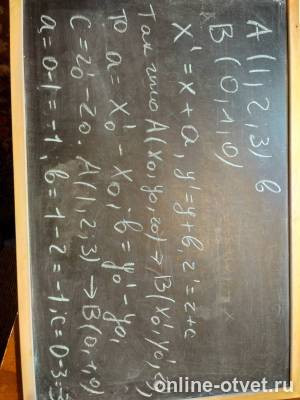 A (1, 2, 3) в
B (0, 1, 0)
x' = x + a, y' = y + b, z' = z + c
Так что A(x₀, y₀, z₀) → B(x₀', y₀', z₀'),
то a = x₀' - x₀, b = y₀' - y₀,
c = z₀' - z₀. A(1, 2, 3) → B(0, 1, 0)
a = 0-1 = -1, b = 1-2 = -1, c = 0-3 = -3
online-otvet.ru